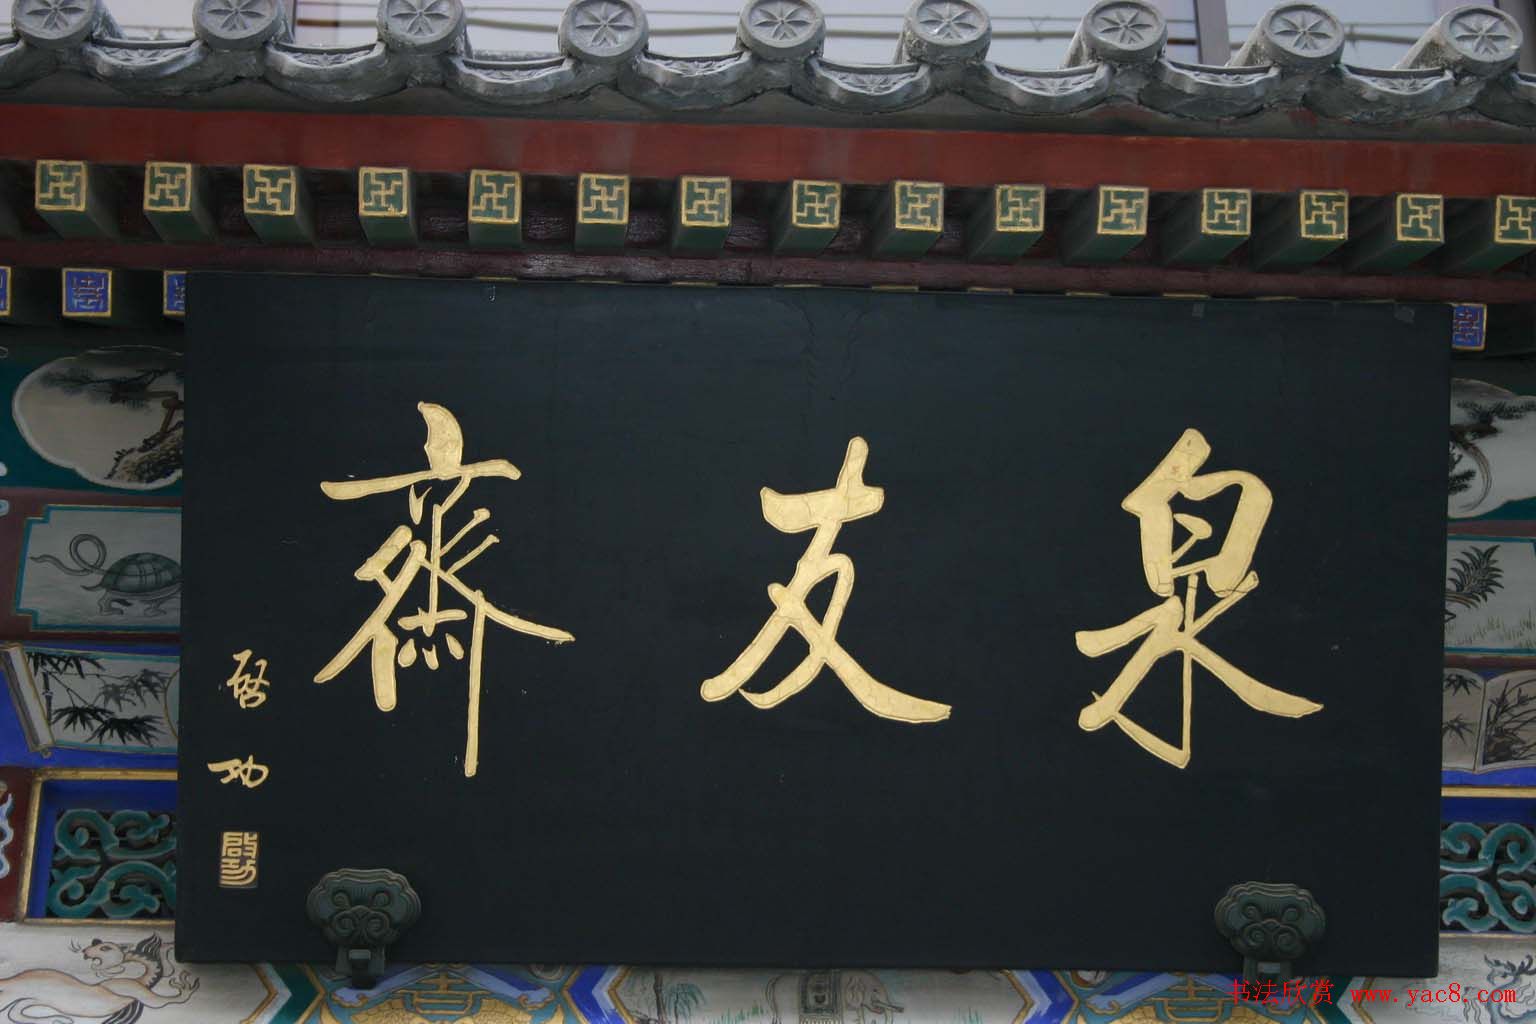 泉友齋
啓功
啟功
书法欣赏 www.yac8.com